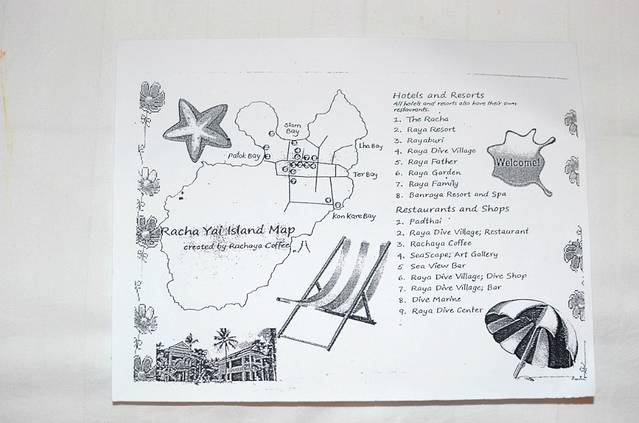 Hotels and Resorts
All hotels and resorts also have their own
restaurants.
1. The Racha
2. Raya Resort
3. Rayaburi
4. Raya Dive Village
5. Raya Father
6. Raya Garden
7. Raya Family
8. Banraya Resort and Spa
Welcome!
Restaurants and Shops
1. Padthai
2. Raya Dive Village; Restaurant
3. Rachaya Coffee
4. SeaScape; Art Gallery
5 Sea View Bar
6 Raya Dive Village; Dive Shop
7. Raya Dive Village; Bar
8. Dive Marine
9. Raya Dive Center
Siam
Bay
Lha Bay
Patok Bay
Ter Bay
Kon Kare Bay
Racha Yai Island Map
created by Rachaya Coffee